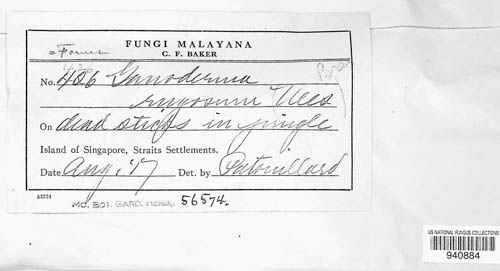 = Fomes
FUNGI MALAYANA
C. F. BAKER
426
No. 406 Ganoderma
rugosum Nees
On dead sticks in jungle
Island of Singapore, Straits Settlements.
Date Aug, '17 Det. by Patouillard
53234
MO. BOT. GARD. HERB. 56574.
US NATIONAL FUNGUS COLLECTIONS
940884